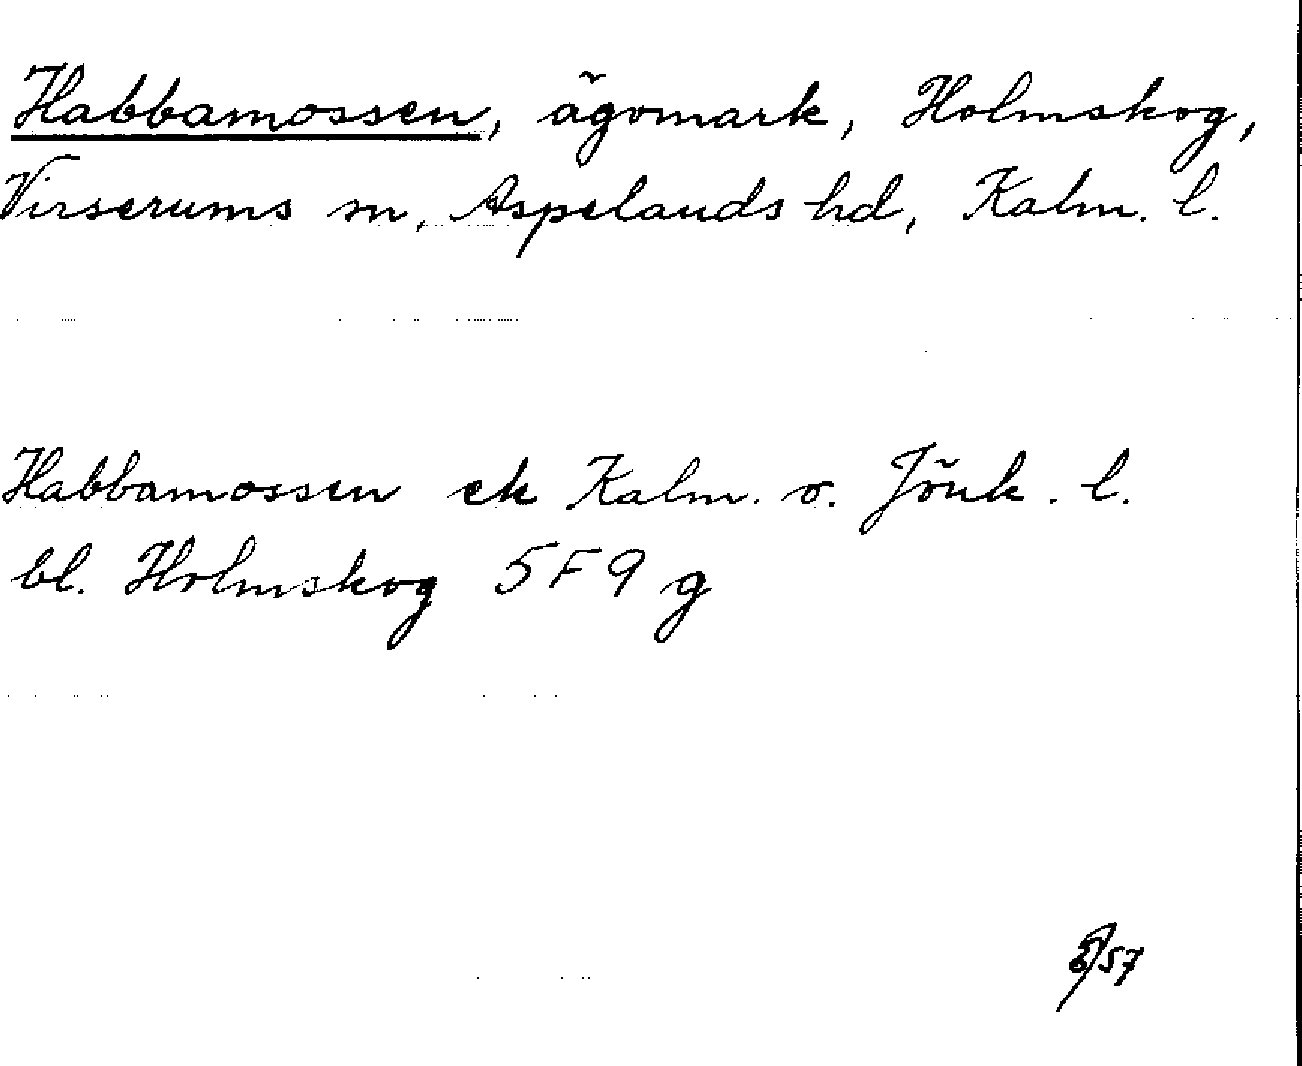 Habbamossen, ägomark, Holmskog,
Virserums sn, Aspelands hd, Kalm. l.
Habbamossen ek Kalm. o. Jönk. l.
bl. Holmskog 5F9g